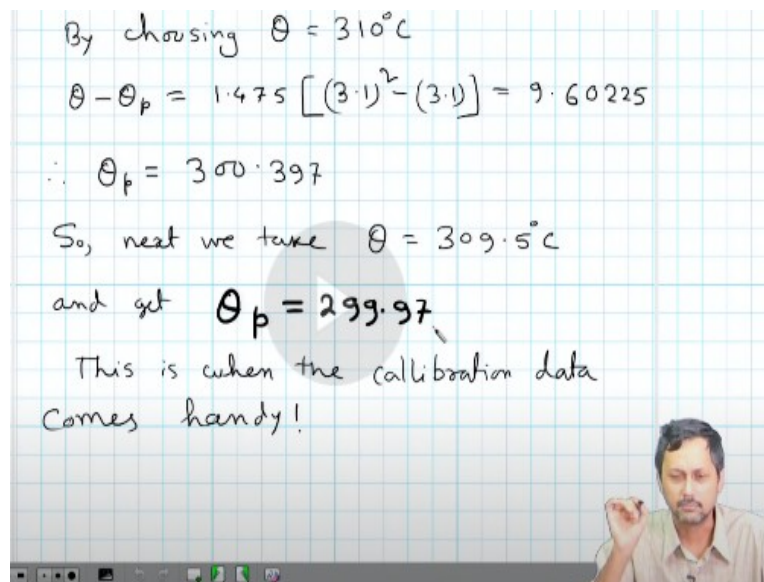 By choosing θ = 310°C
θ - θp = 1.475 [(3.1)² - (3.1)] = 9.60225
∴ θp = 300.397
So, next we take θ = 309.5°C
and get θp = 299.97
This is when the callibration data
comes handy!